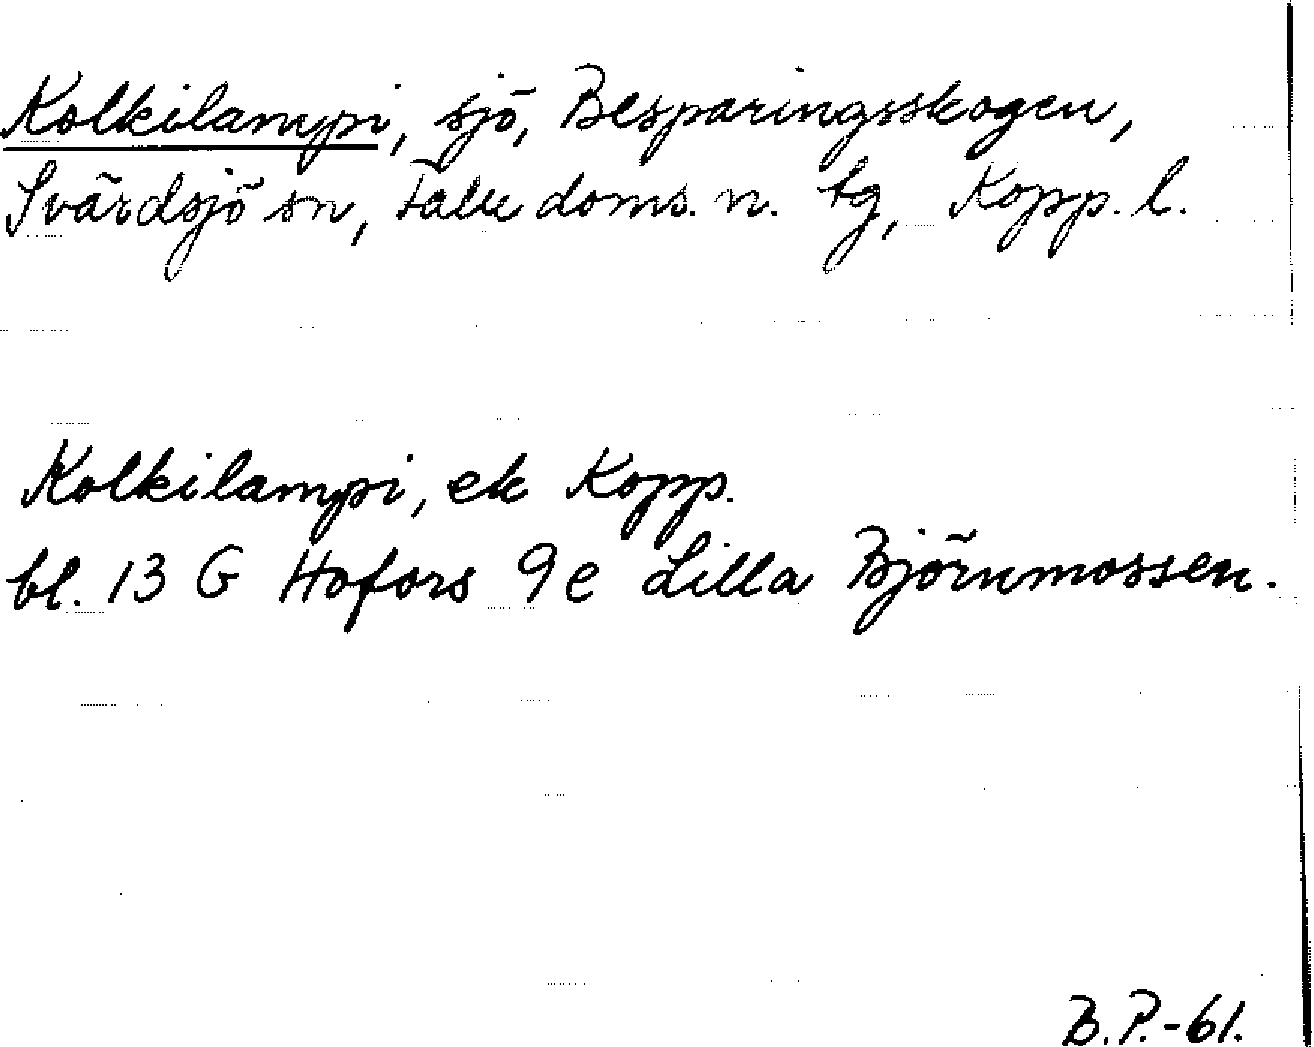 Kolkilampi, sjö, Besparingsskogen,
Svärdsjö sn, Falu doms. n. tg, Kopp. l.
Kolkilampi, ek Kopp.
bl. 13 G Hofors 9 e Lilla Björnmossen.
B.P.-61.